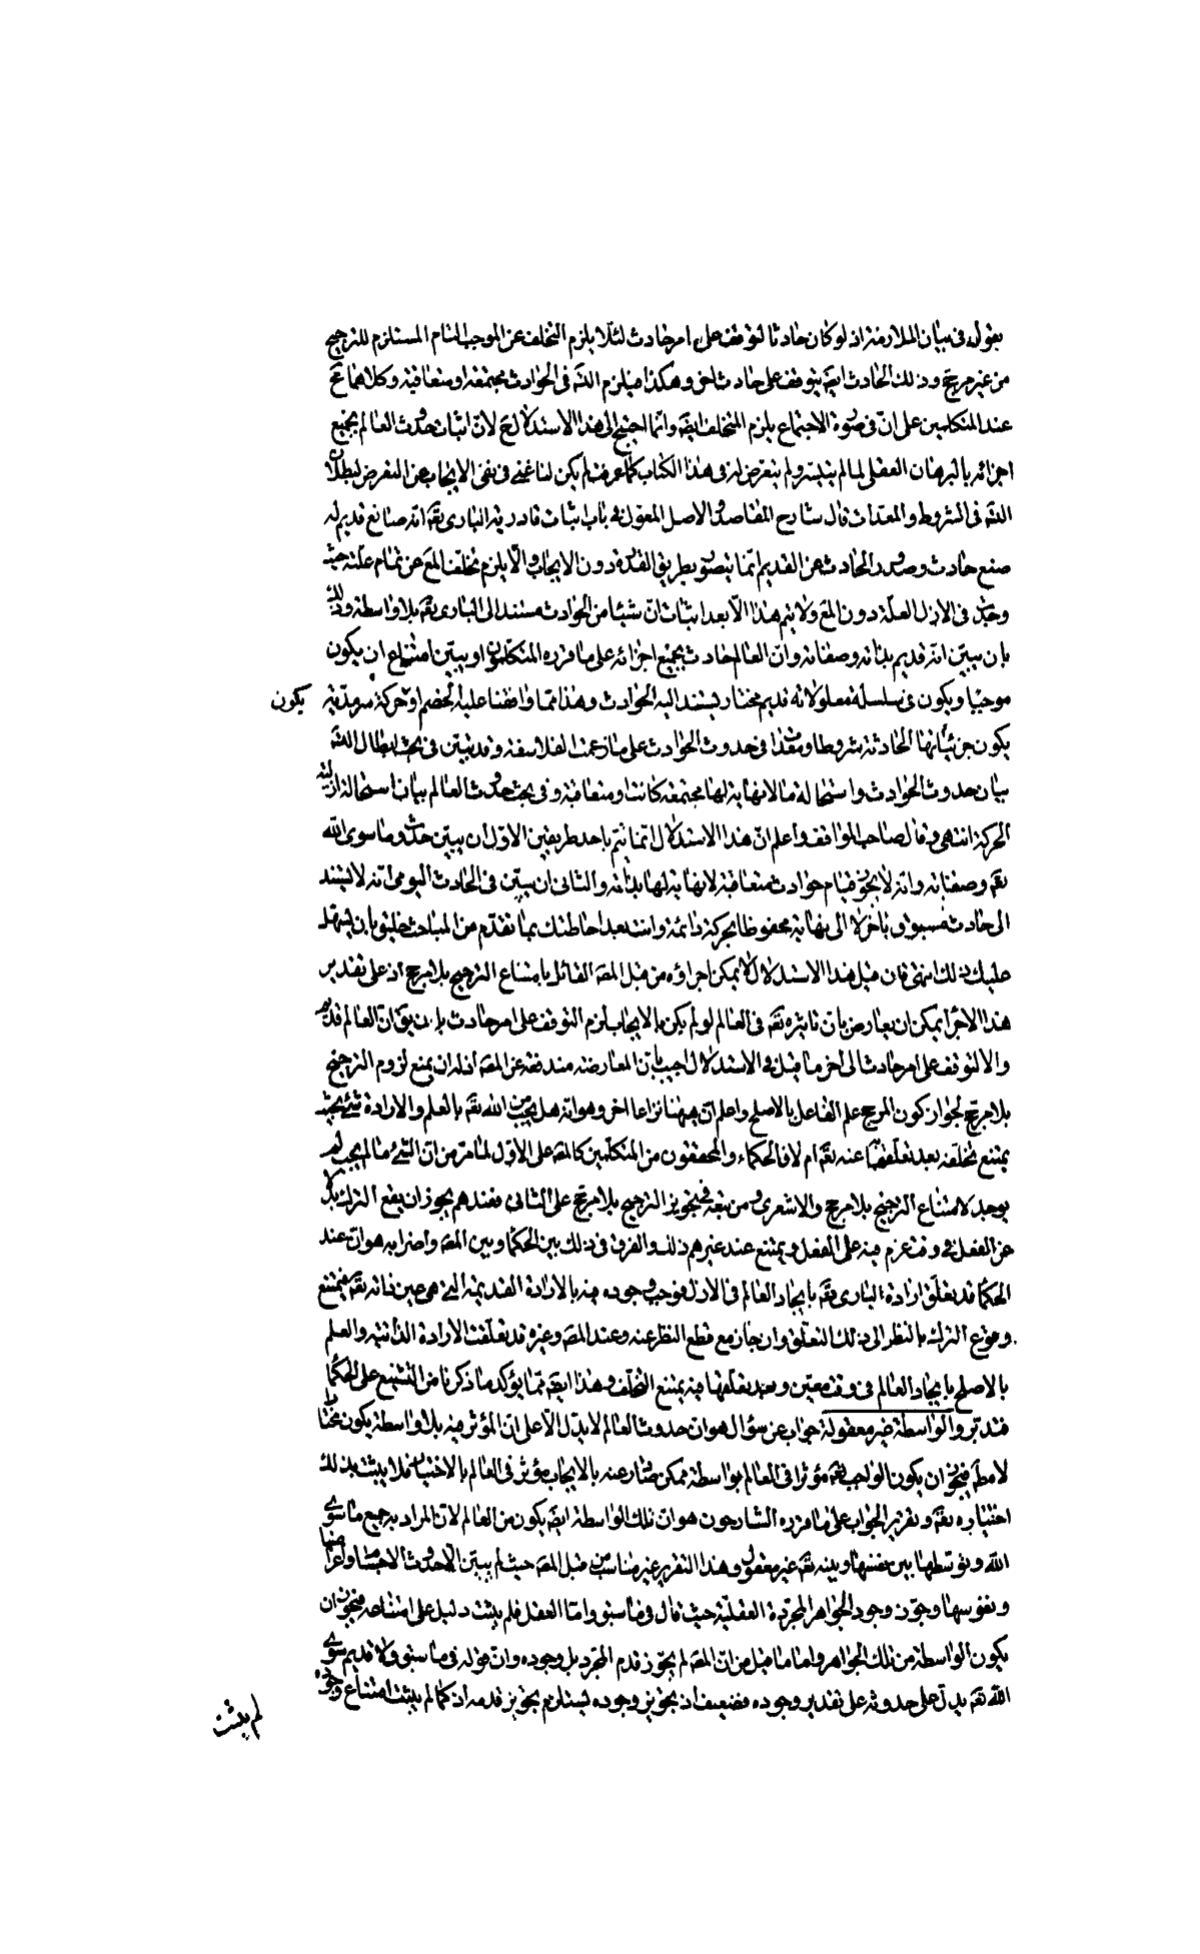 بقوله فى بيان الملازمة اذ لو كان حادثا لتوقف على امر حادث لئلا يلزم التخلف عن الموجب التام المستلزم للترجيح
من غير مرجح وذلك الحادث ايضه يتوقف على حادث اخر وهكذا فيلزم التسه فى الحوادث مجتمعة او متعاقبة وكلاهما مح
عند المتكلمين على ان فى صورة الاجتماع يلزم التخلف ايضه وانما احتيج الى هذا الاستدلال لان اثبات حدوث العالم بجميع
اجزائه بالبرهان العقلى لما لم يثبت ولم يتعرض له فى هذا الكتاب كما عرفت لم يكن لنا غنى فى نفى الايجاب عن التعرض لبطلان
التسه فى الشروط والمعدات قال شارح المقاصد والاصل المعول فى باب اثبات قادرية البارى تعه انه صانع قديم له
صنع حادث وصدور الحادث عن القديم انما يتصور بطريق القدرة دون الايجاب والا يلزم تخلف المع عن تمام علته حيث
وجدت فى الازل العلة دون المع ولا يتم هذا الا بعد اثبات ان شيئا من الحوادث مستند الى البارى تعه بلا واسطة وذلك
بان يبين انه قديم بذاته وصفاته وان العالم حادث بجميع اجزائه على ما قرره المتكلمون او يبين امتناع ان يكون
موجبا ويكون فى سلسلة معلولاته قديم مختار يستند اليه الحوادث وهذا مما وافقنا عليه الخصم او حركة سرمدية يكون
يكون جزئياتها الحادثة شروطا ومعدات فى حدوث الحوادث على ما زعمت الفلاسفة وقد بين فى بحث ابطال التسه
بيان حدوث الحوادث واستحالة ما لا نهاية لها مجتمعة كانت او متعاقبة وفى بحث حدوث العالم بيان استحالة ازلية
الحركة انتهى وقال صاحب المواقف واعلم ان هذا الاستدلال انما يتم باحد طريقين الاول ان يبين حدوث ما سوى الله
تعه وصفاته وانه لا يجوز قيام حوادث متعاقبة لا نهاية لها بذاته والثانى ان يبين فى الحادث اليومى انه لا يستند
الى حادث مسبوق باخر لا الى نهاية محفوظا بحركة دائمة وانت بعد احاطتك بما تقدم من المباحث خليق بان يسهل
عليك ذلك انتهى فان قيل هذا الاستدلال لا يمكن اجراؤه من قبل المصه القائل بامتناع الترجيح بلا مرجح اذ على تقدير
هذا الاجراء يمكن ان يعارض بان تاثيره تعه فى العالم لو لم يكن بالايجاب لزم التوقف على امر حادث بان يقه ان العالم قديم
والا لتوقف على امر حادث الى اخر ما قيل فى الاستدلال اجيب بان المعارضة مندفعة عن المصه اذ له ان يمنع لزوم الترجيح
بلا مرجح لجواز كون المرجح علم الفاعل بالاصلح واعلم ان ههنا نزاعا اخر وهو انه هل يجب من الله تعه بالعلم والارادة شئ بحيث
يمتنع تخلفه بعد تعلقهما عنه تعه ام لا فالحكماء والمحققون من المتكلمين كالمصه على الاول لما مر من ان الشئ ما لم يجب لم
يوجد لامتناع الترجيح بلا مرجح والاشعرى ومن تبعه فى تجويز الترجيح بلا مرجح على الثانى فعندهم يجوز ان يقع الترك بدلا
عن الفعل فى وقت عزم فيه على الفعل ويمتنع عند غيرهم ذلك والفرق فى ذلك بين الحكماء وبين المصه واضرابه هو ان عند
الحكماء قد تعلق ارادة البارى تعه بايجاد العالم فى الازل فوجب وجوده فيه بالارادة القديمة التى هى عين ذاته تعه فيمتنع
وقوع الترك بالنظر الى ذلك التعلق وان جاز مع قطع النظر عنه وعند المصه وغيره قد تعلقت الارادة الذاتية والعلم
بالاصلح بايجاد العالم فى وقت معين وبعد تعلقها فيه يمتنع التخلف وهذا ايضه مما يؤكد ما ذكرنا من التشنيع على الحكماء
فتدبر والواسطة غير معقولة جواب عن سؤال هو ان حدوث العالم لا يدل الا على ان المؤثر فيه بلا واسطة يكون مختارا
لا مطه فيجوز ان يكون الواجب تعه مؤثرا فى العالم بواسطة ممكن صادر عنه بالايجاب يؤثر فى العالم بالاختيار فلا يثبت بذلك
اختياره تعه وتقرير الجواب على ما قرره الشارحون هو ان تلك الواسطة ايضه يكون من العالم لان المراد به جميع ما سوى
الله وتوسطها بين نفسها وبينه تعه غير معقول وهذا التقرير غير مناسب من قبل المصه حيث لم يبين الا حدوث الاجسام واعراضها
ونفوسها وجوز وجود الجواهر المجردة العقلية حيث قال فى ما سبق واما العقل فلم يثبت دليل على امتناعه فيجوز ان
يكون الواسطة من تلك الجواهر واما ما قيل من ان المصه لم يجوز قدم المجرد بل وجوده وان قوله فى ما سبق ولا قديم سوى
الله تعه يدل على حدوثه على تقدير وجوده فضعيف اذ تجويز وجوده يستلزم تجويز قدمه اذ كما لم يثبت امتناع وجوده
لم يثبت